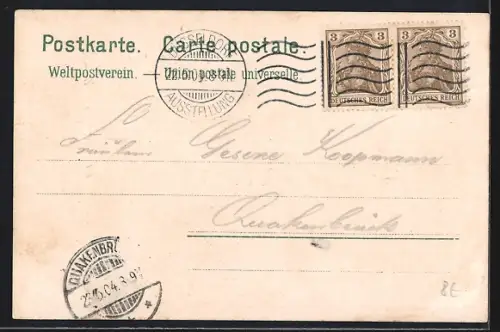 Postkarte. Carte postale.
Weltpostverein. — Union postale universelle
DÜSSELDORF
22.5.04. 8-9N.
AUSSTELLUNG
3 3
3 3
DEUTSCHES REICH DEUTSCHES REICH
Fräulein Gesine Koopmann
Quakenbrück
QUAKENBRÜ
23.5.04. 8-9V.
BE